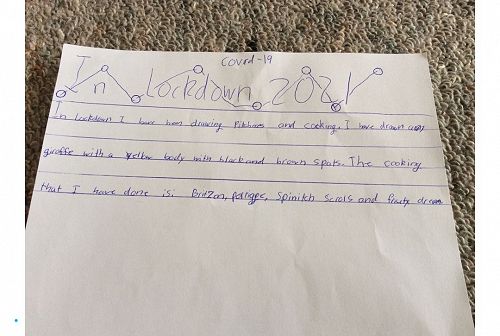 Covid-19
In Lockdown 2021
In lockdown I have been drawing Pitchers and cooking. I have drawn a
giraffe with a yellow body with black and brown spots. The cooking
that I have done is: spinitch scrols and fruity